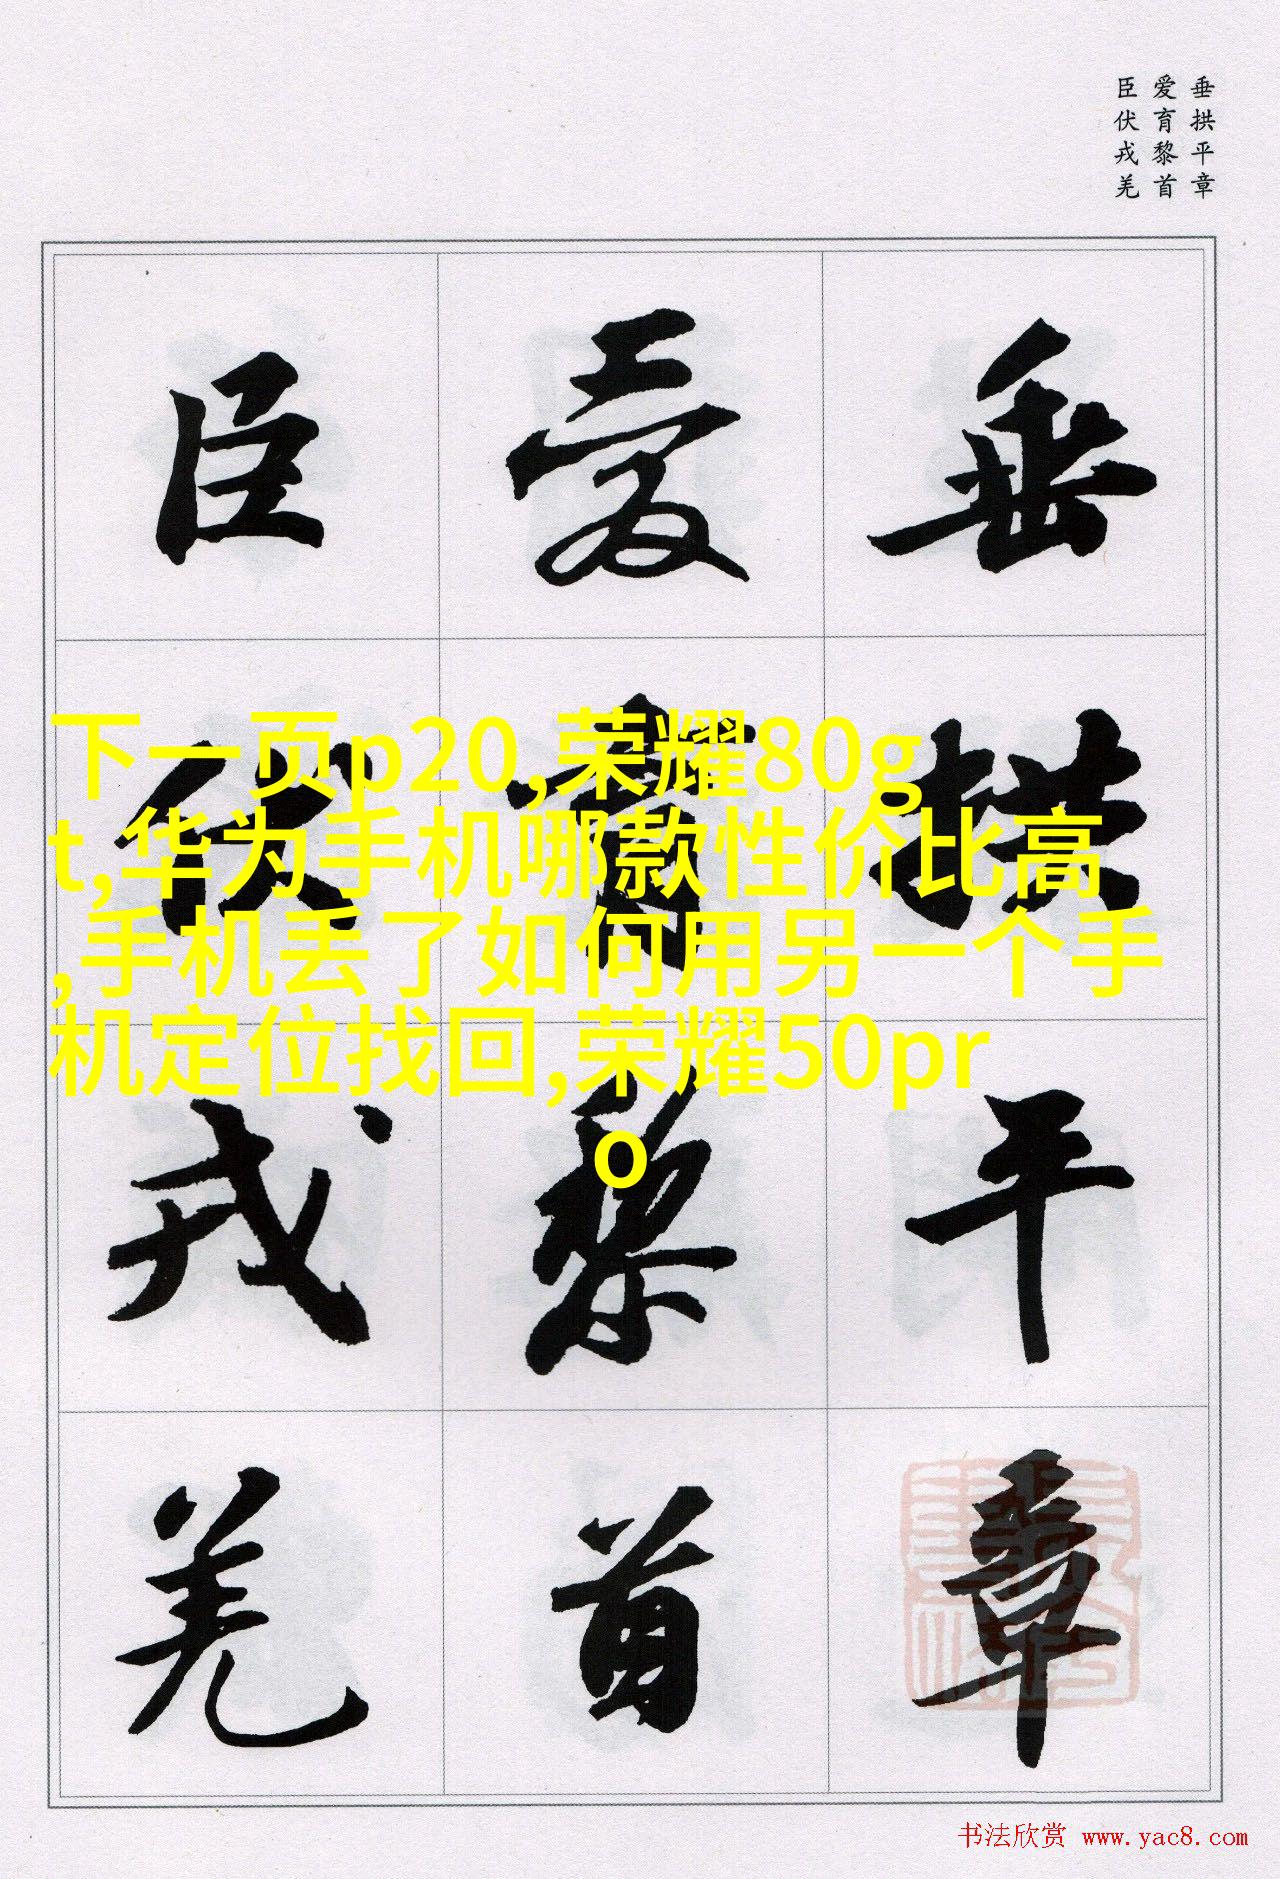 垂拱平章
爱育黎首
臣伏戎羌
垂拱平章
爱育黎首
臣伏戎羌
下一页p20,荣耀80g
t,华为手机哪款性价比高
,手机丢了如何用另一个手
机定位找回,荣耀50pr
o
书法欣赏 www.yac8.com